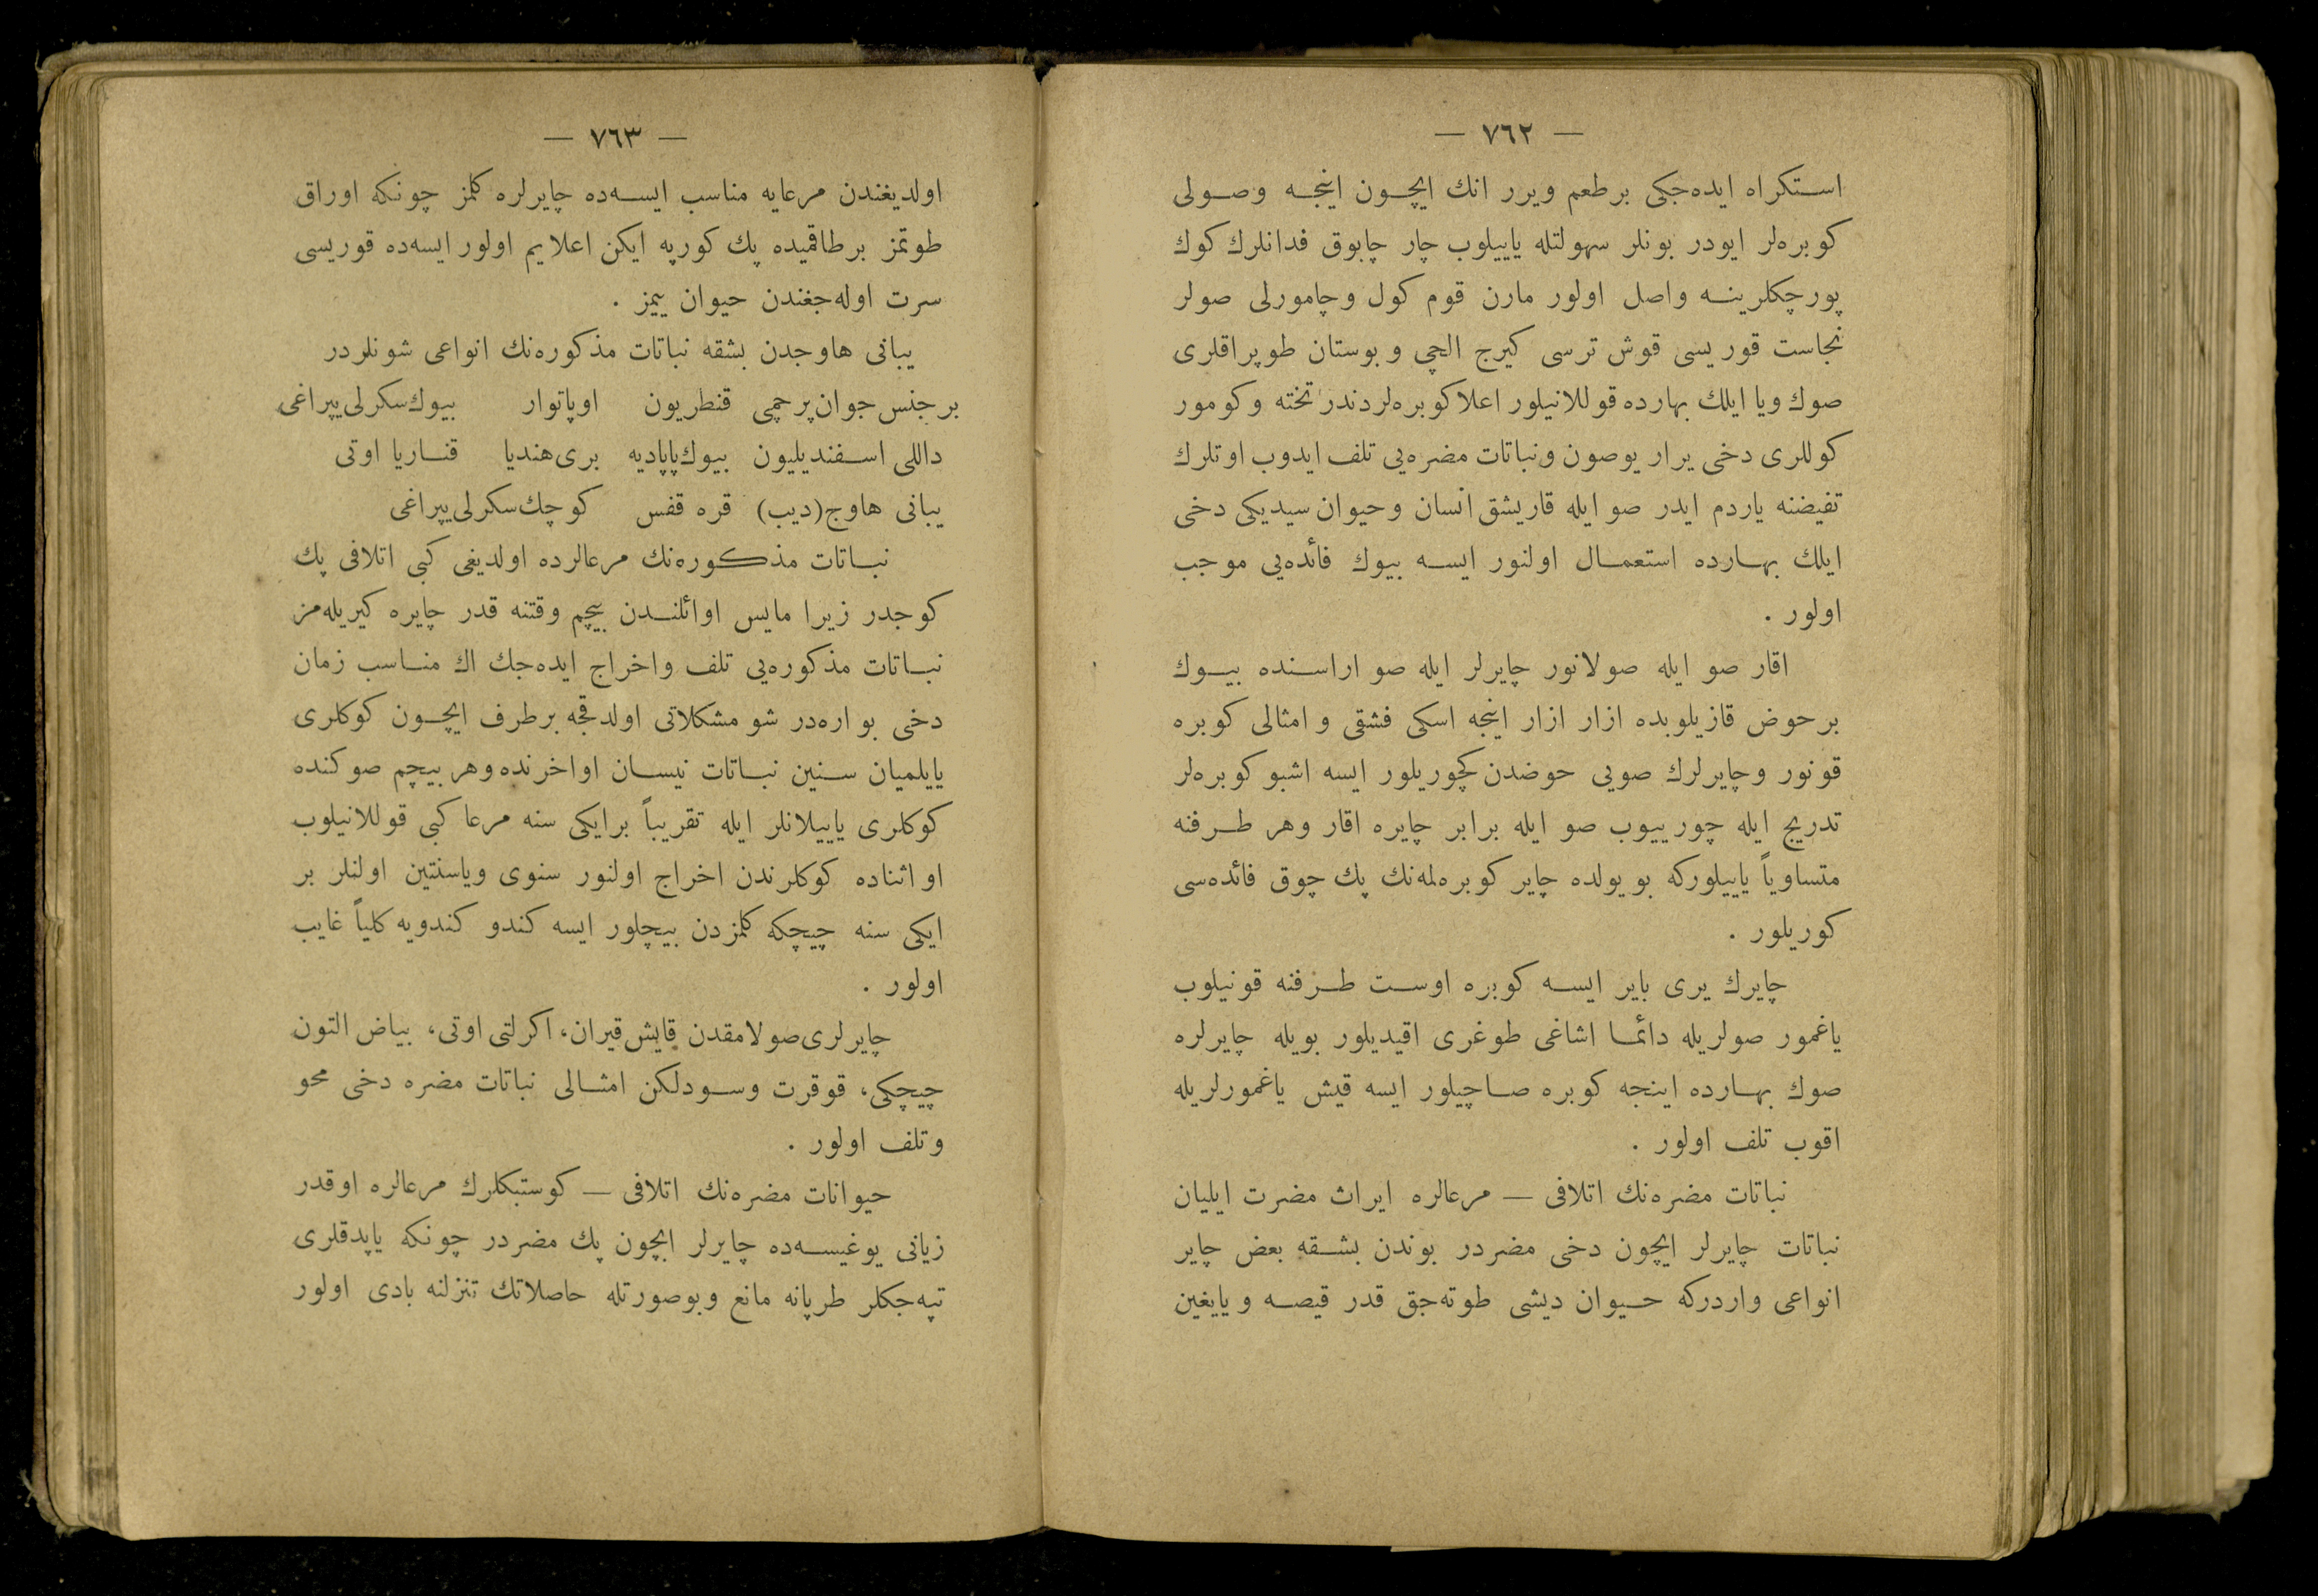 — ٧٦٢ —
استكراه ايده‌جكى برطعم ويرر انك ايچون اينجه وصولى
كوبره‌لر ايودر بونلر سهولتله ياييلوب چار چابوق فدانلرك كوك
پورچكلرينه واصل اولور مارن قوم كول وچامورلى صولر
نجاست قوريسى قوش ترسى كيرج الچى وبوستان طوپراقلرى
صوك ويا ايلك بهارده قوللانيلور اعلا كوبره‌لردندر تخته وكومور
كوللرى دخى يرار يوصون ونباتات مضره‌يى تلف ايدوب اوتلرك
تفيضنه ياردم ايدر صو ايله قاريشق انسان وحيوان سيديكى دخى
ايلك بهارده استعمال اولنور ايسه بيوك فائده‌يى موجب
اولور .
اقار صو ايله صولانور چايرلر ايله صو اراسنده بيوك
برحوض قازيلوبده ازار ازار اينجه اسكى فشقى و امثالى كوبره
قونور وچايرلرك صويى حوضدن كچوريلور ايسه اشبو كوبره‌لر
تدريج ايله چورييوب صو ايله برابر چايره اقار وهر طرفنه
متساوياً ياييلوركه بو يولده چاير كوبره‌لمه‌نك پك چوق فائده‌سى
كوريلور .
چايرك يرى باير ايسه كوبره اوست طرفنه قونيلوب
ياغمور صولريله دائما اشاغى طوغرى اقيديلور بويله چايرلره
صوك بهارده اينجه كوبره صاچيلور ايسه قيش ياغمورلريله
اقوب تلف اولور .
نباتات مضره‌نك اتلافى — مرعالره ايراث مضرت ايليان
نباتات چايرلر ايچون دخى مضردر بوندن بشقه بعض چاير
انواعى واردركه حيوان ديشى طوته‌جق قدر قيصه و يايغين
— ٧٦٣ —
اولديغندن مرعايه مناسب ايسه‌ده چايرلره كلمز چونكه اوراق
طوتمز برطاقميده پك كورپه ايكن اعلايم اولور ايسه‌ده قوريسى
سرت اوله‌جغندن حيوان ييمز .
يبانى هاوجدن بشقه نباتات مذكوره‌نك انواعى شونلردر
برجنس جوان‌پرچمى قنطريون اوپاتوار بيوك سكرلى‌يپراغى
داللى اسفنديليون بيوك‌پاپاديه برى‌هنديا قناريا اوتى
يبانى هاوج(ديب) قره قفس كوچك‌سكرلى‌يپراغى
نباتات مذكوره‌نك مرعالرده اولديغى كبى اتلافى پك
كوجدر زيرا مايس اوائلندن بيچم وقتنه قدر چايره كيريله‌مز
نباتات مذكوره‌يى تلف واخراج ايده‌جك اك مناسب زمان
دخى بو اره‌در شو مشكلاتى اولدقجه برطرف ايچون كوكلرى
يايلميان سنين نباتات نيسان اواخرنده وهر بيچم صوكنده
كوكلرى ياييلانلر ايله تقريباً برايكى سنه مرعا كبى قوللانيلوب
او اثناده كوكلرندن اخراج اولنور سنوى وياسنتين اولنلر بر
ايكى سنه چيچكه كلمزدن بيچلور ايسه كندو كندويه كلياً غايب
اولور .
چايرلرى صولامقدن قايش‌قيران، اكرلتى اوتى، بياض التون
چيچكى، قوقرت وسودلكن امثالى نباتات مضره دخى محو
وتلف اولور .
حيوانات مضره‌نك اتلافى — كوستبكلرك مرعالره اوقدر
زيانى يوغيسه‌ده چايرلر ايچون پك مضردر چونكه ياپدقلرى
تپه‌جكلر طرپانه مانع وبوصورتله حاصلاتك تنزلنه بادى اولور